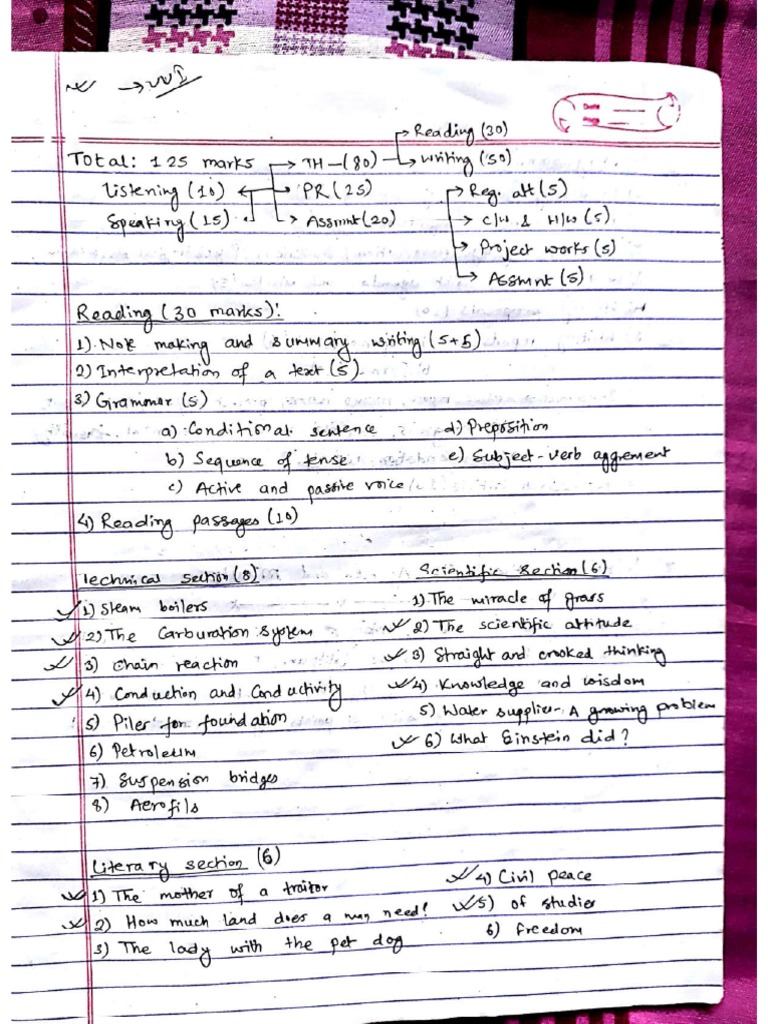 → VVI
Date
Reading (30)
Total: 125 marks → TH – (80) → writing (50)
Listening (10) PR (25) → Reg. att (5)
Speaking (15) Assmnt (20) → C/W & H/W (5)
→ Project works (5)
→ Assmnt (5)
Reading (30 marks):
1) Note making and summary writing (5+5)
2) Interpretation of a text (5)
3) Grammer (5)
a) Conditional sentence d) Preposition
b) Sequence of tense e) Subject-verb aggrement
c) Active and passive voice
4) Reading passages (10)
Technical section (8) Scientific section (6)
1) Steam boilers 1) The miracle of grass
2) The Carburation system 2) The scientific attitude
3) Chain reaction 3) Straight and crooked thinking
4) Conduction and Conductivity 4) Knowledge and wisdom
5) Piles for foundation 5) Water supplies- A growing problem
6) Petroleum 6) What Einstein did?
7) Suspension bridges
8) Aerofils
Literary section (6)
1) The mother of a traitor 4) Civil peace
2) How much land does a man need? 5) of studies
3) The lady with the pet dog 6) freedom